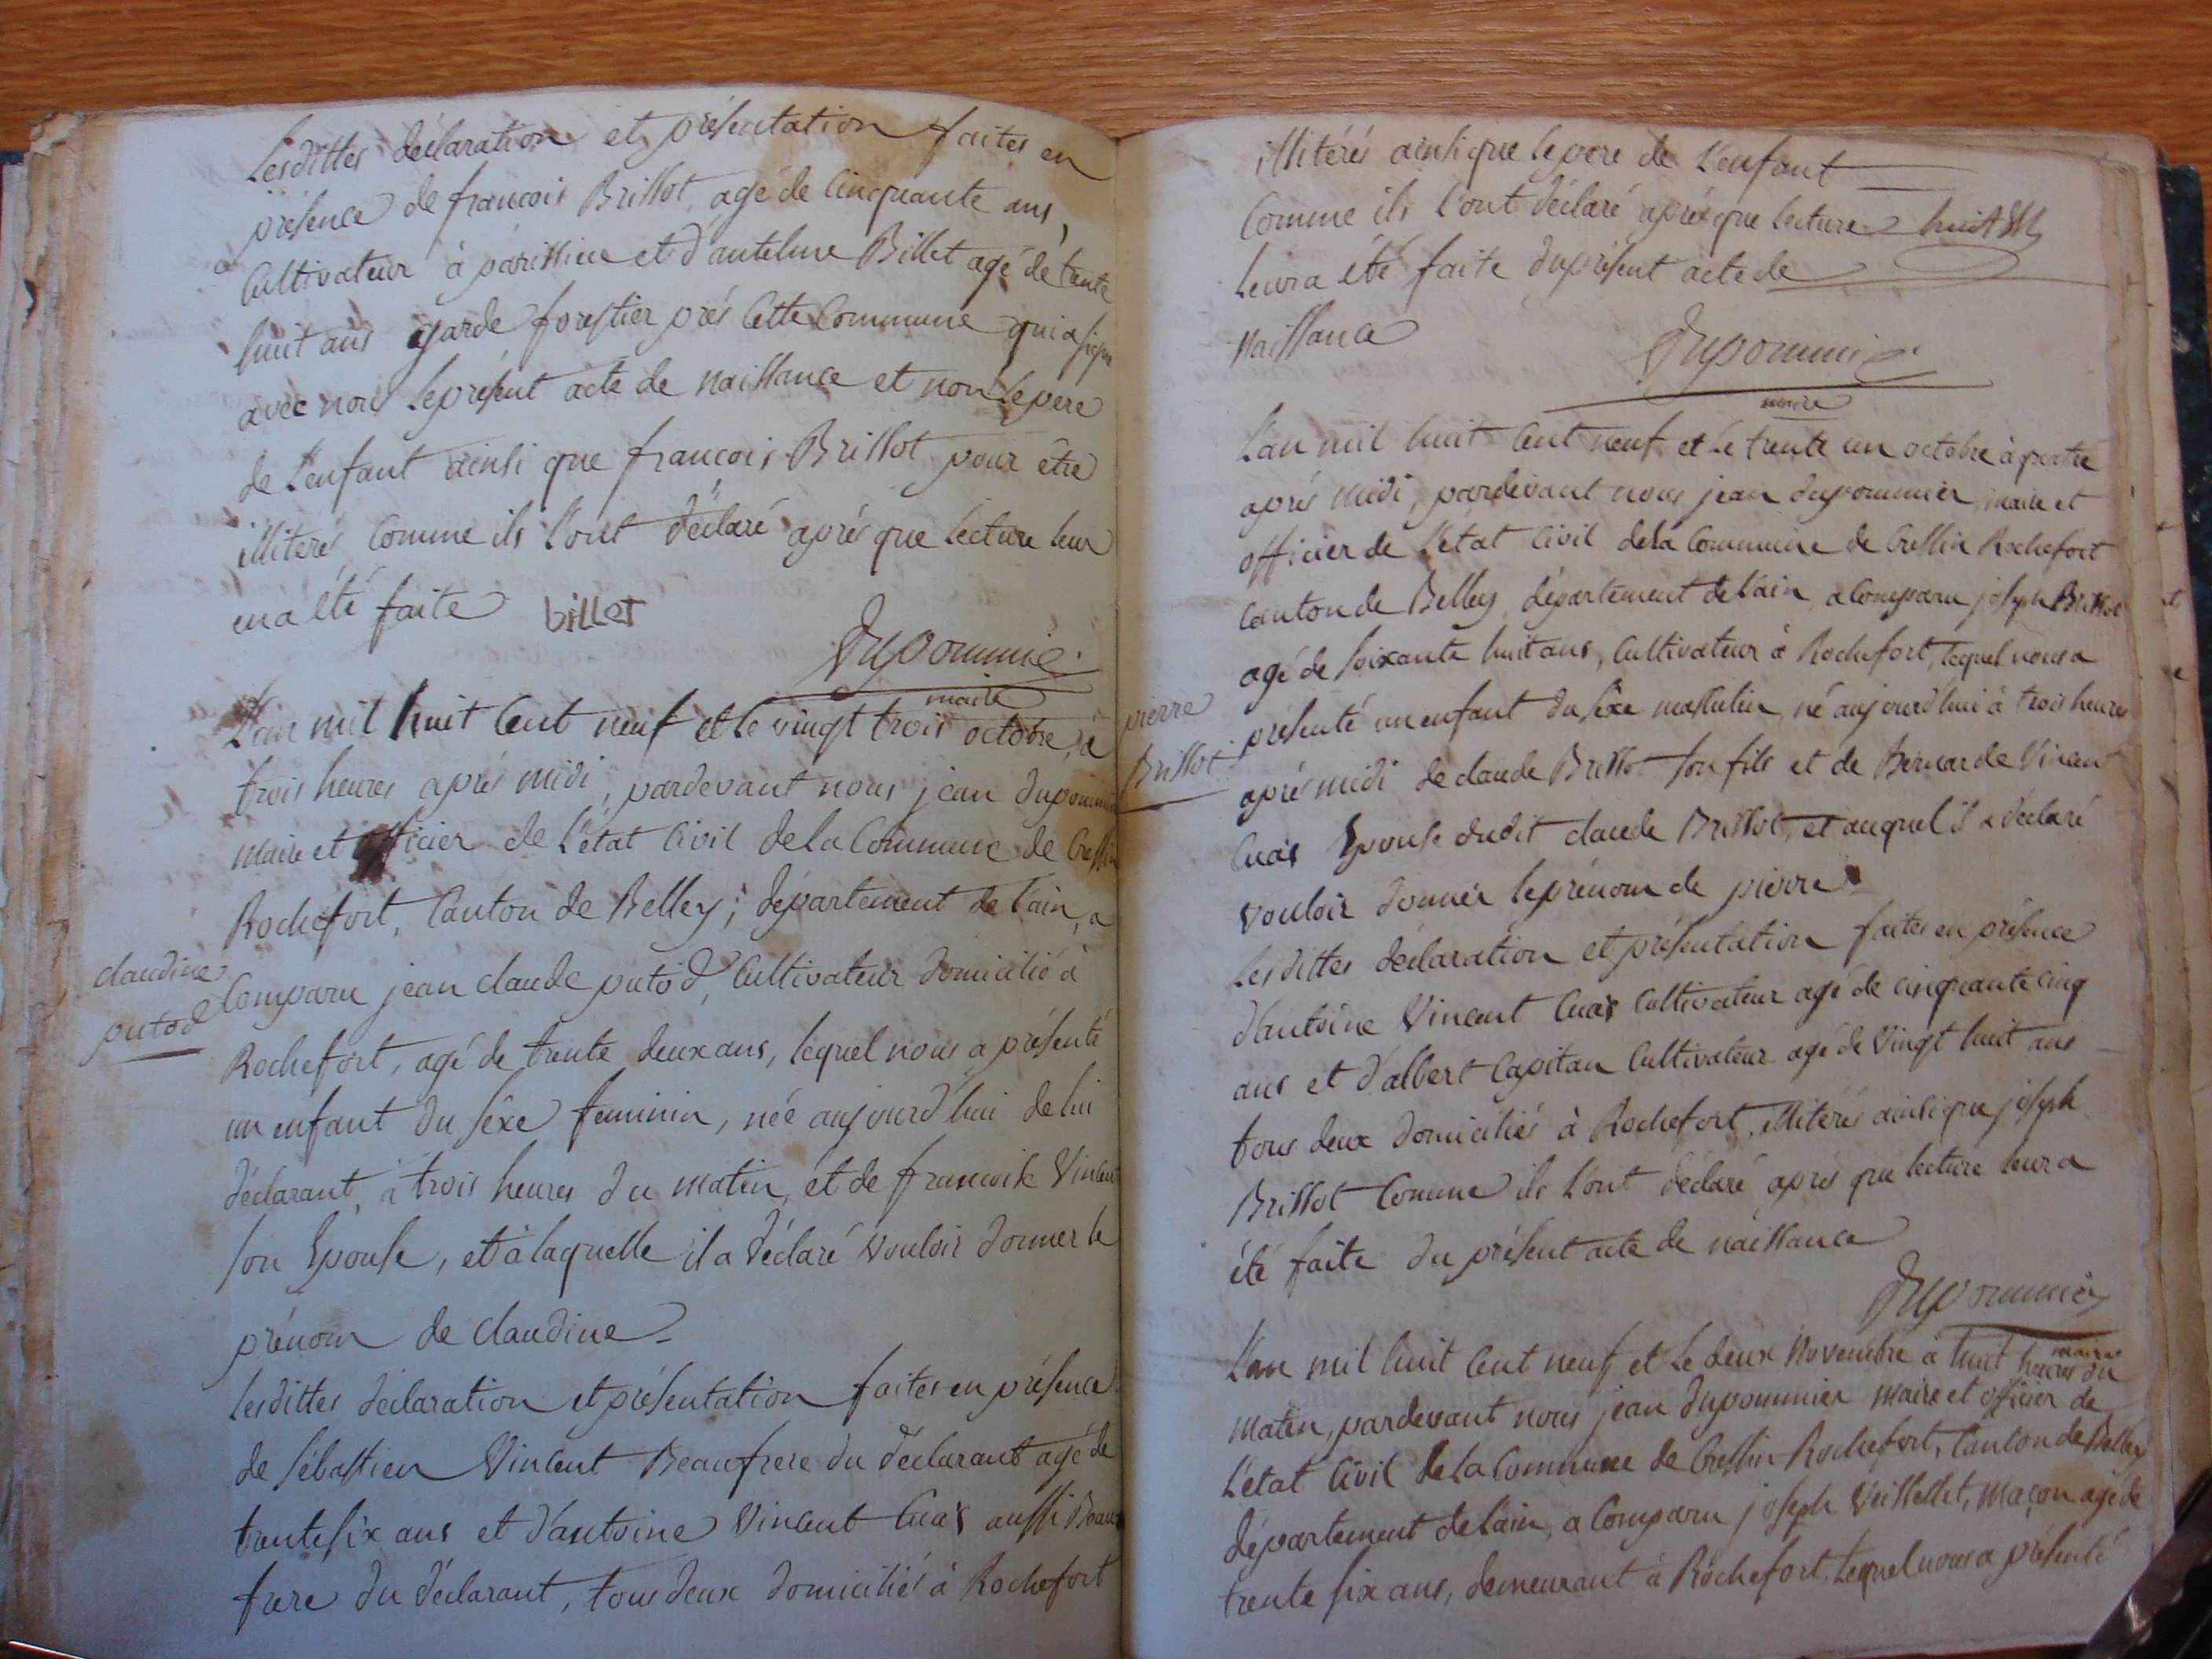 Lesdittes déclaration et présentation faites en
présence de francois Brillot, agé de Cinquante ans,
Cultivateur à parissieu et d'antelme Billet agé de trente
huit ans garde forestier prés Cette Commune qui a signé
avec nous le présent acte de naissance et non le pere
de L'enfant ainsi que francois Brillot pour être
illiterés Comme ils l'ont déclaré aprés que Lecture leur
en a été faite billet
Dupommier
maire
L'an mil huit Cent neuf et le vingt trois octobre, à
trois heures aprés midi, pardevant nous jean dupommier
maire et officier de L'état Civil de la Commune de Cressin
Rochefort, Canton de Belley, département de L'ain, a
claudine
putod
Comparu jean claude putod, Cultivateur domicilié à
Rochefort, agé de trente deux ans, lequel nous a présenté
un enfant du séxe feminin, née aujourd'hui de lui
déclarant, à trois heures du matin, et de francoise Vincent
son Epouse, et à laquelle il a déclaré vouloir donner le
prénom de claudine
lesdittes déclaration et présentation faites en présence
de sébastien Vincent Beaufrere du déclarant agé de
trente six ans et d'antoine Vincent Cuas aussi Beau
frere du déclarant, tous deux domiciliés à Rochefort
illitérés ainsi que le pere de L'enfant
Comme ils l'ont déclaré aprés que Lecture
Leur a été faite du présent acte de
naissance
Dupommier
maire
L'an mil huit Cent neuf et le trente un octobre à quatre
aprés midi, pardevant nous jean dupommier maire et
officier de L'état Civil de la Commune de Cressin Rochefort
Canton de Belley, département de L'ain, a Comparu joseph Brillot
agé de soixante huit ans, Cultivateur à Rochefort, lequel nous a
pierre
Brillot
présenté un enfant du sexe masculin, né aujourd'hui à trois heures
aprés midi de claude Brillot son fils et de Bernarde Vincent
Cuas Epouse dudit claude Brillot, et auquel il a déclaré
vouloir donner le prénom de pierre
Lesdittes déclaration et présentation faites en présence
d'antoine Vincent Cuas Cultivateur agé de cinquante cinq
ans et d'albert Capitan Cultivateur agé de Vingt huit ans
tous deux domiciliés à Rochefort, illiterés ainsi que joseph
Brillot Comme ils l'ont déclaré aprés que lecture leur a
été faite du présent acte de naissance
Dupommier
maire
L'an mil huit Cent neuf et le deux Novembre à huit heures du
matin, pardevant nous jean dupommier maire et officier de
L'état Civil de la Commune de Cressin Rochefort, Canton de Belley
département de L'ain, a Comparu joseph Veillellet, maçon agé de
trente six ans, demeurant à Rochefort, Lequel nous a présenté